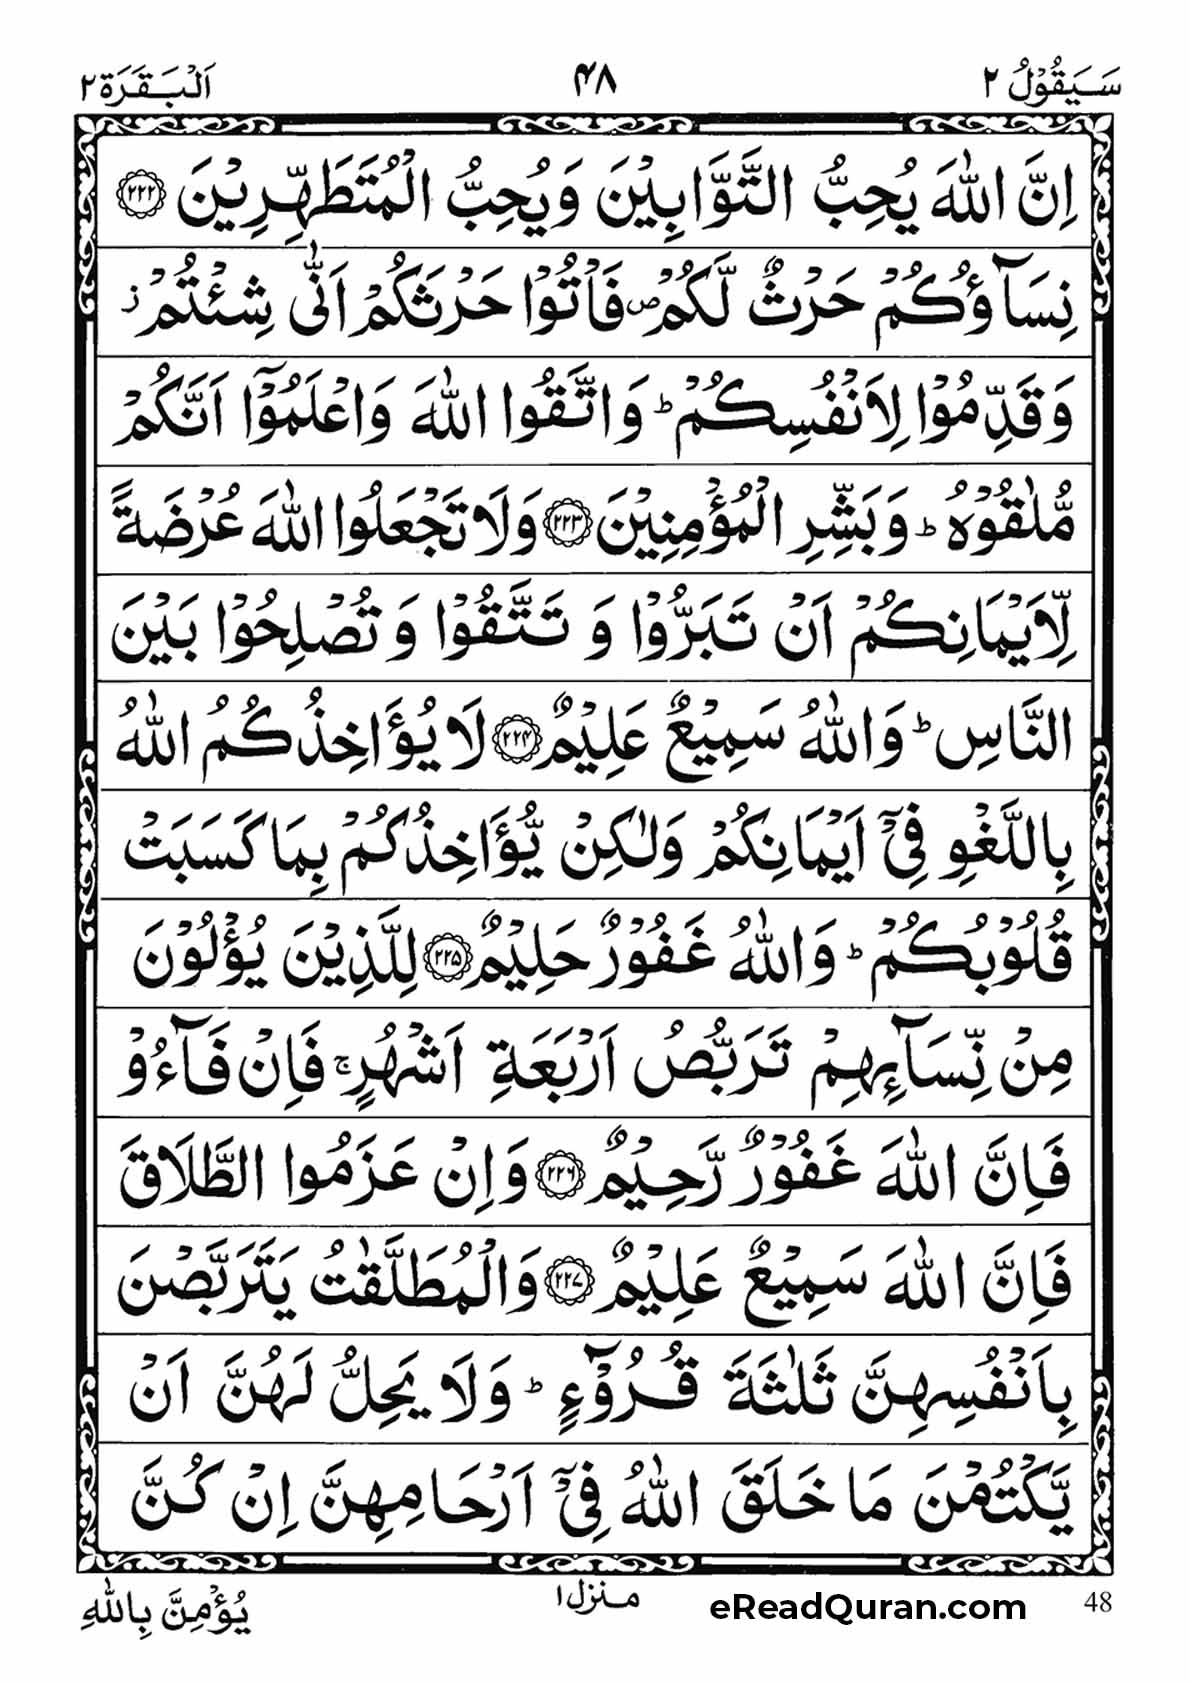 سَيَقُوْلُ ٢ ۴۸ اَلْبَقَرَة ٢
اِنَّ اللّٰهَ يُحِبُّ التَّوَّابِيْنَ وَيُحِبُّ الْمُتَطَهِّرِيْنَ ﴿۲۲۲﴾
نِسَآؤُكُمْ حَرْثٌ لَّكُمْ ۖ فَاْتُوْا حَرْثَكُمْ اَنّٰى شِئْتُمْ ز
وَقَدِّمُوْا لِاَنْفُسِكُمْ ؕ وَاتَّقُوا اللّٰهَ وَاعْلَمُوْٓا اَنَّكُمْ
مُّلٰقُوْهُ ؕ وَبَشِّرِ الْمُؤْمِنِيْنَ ﴿۲۲۳﴾ وَلَا تَجْعَلُوا اللّٰهَ عُرْضَةً
لِّاَيْمَانِكُمْ اَنْ تَبَرُّوْا وَ تَتَّقُوْا وَ تُصْلِحُوْا بَيْنَ
النَّاسِ ؕ وَاللّٰهُ سَمِيْعٌ عَلِيْمٌ ﴿۲۲۴﴾ لَا يُؤَاخِذُكُمُ اللّٰهُ
بِاللَّغْوِ فِيْٓ اَيْمَانِكُمْ وَلٰكِنْ يُّؤَاخِذُكُمْ بِمَا كَسَبَتْ
قُلُوْبُكُمْ ؕ وَاللّٰهُ غَفُوْرٌ حَلِيْمٌ ﴿۲۲۵﴾ لِلَّذِيْنَ يُؤْلُوْنَ
مِنْ نِّسَآئِهِمْ تَرَبُّصُ اَرْبَعَةِ اَشْهُرٍ ۚ فَاِنْ فَآءُوْ
فَاِنَّ اللّٰهَ غَفُوْرٌ رَّحِيْمٌ ﴿۲۲۶﴾ وَاِنْ عَزَمُوا الطَّلَاقَ
فَاِنَّ اللّٰهَ سَمِيْعٌ عَلِيْمٌ ﴿۲۲۷﴾ وَالْمُطَلَّقٰتُ يَتَرَبَّصْنَ
بِاَنْفُسِهِنَّ ثَلٰثَةَ قُرُوْٓءٍ ؕ وَلَا يَحِلُّ لَهُنَّ اَنْ
يَّكْتُمْنَ مَا خَلَقَ اللّٰهُ فِيْٓ اَرْحَامِهِنَّ اِنْ كُنَّ
يُؤْمِنَّ بِاللّٰهِ منزل ١ eReadQuran.com 48